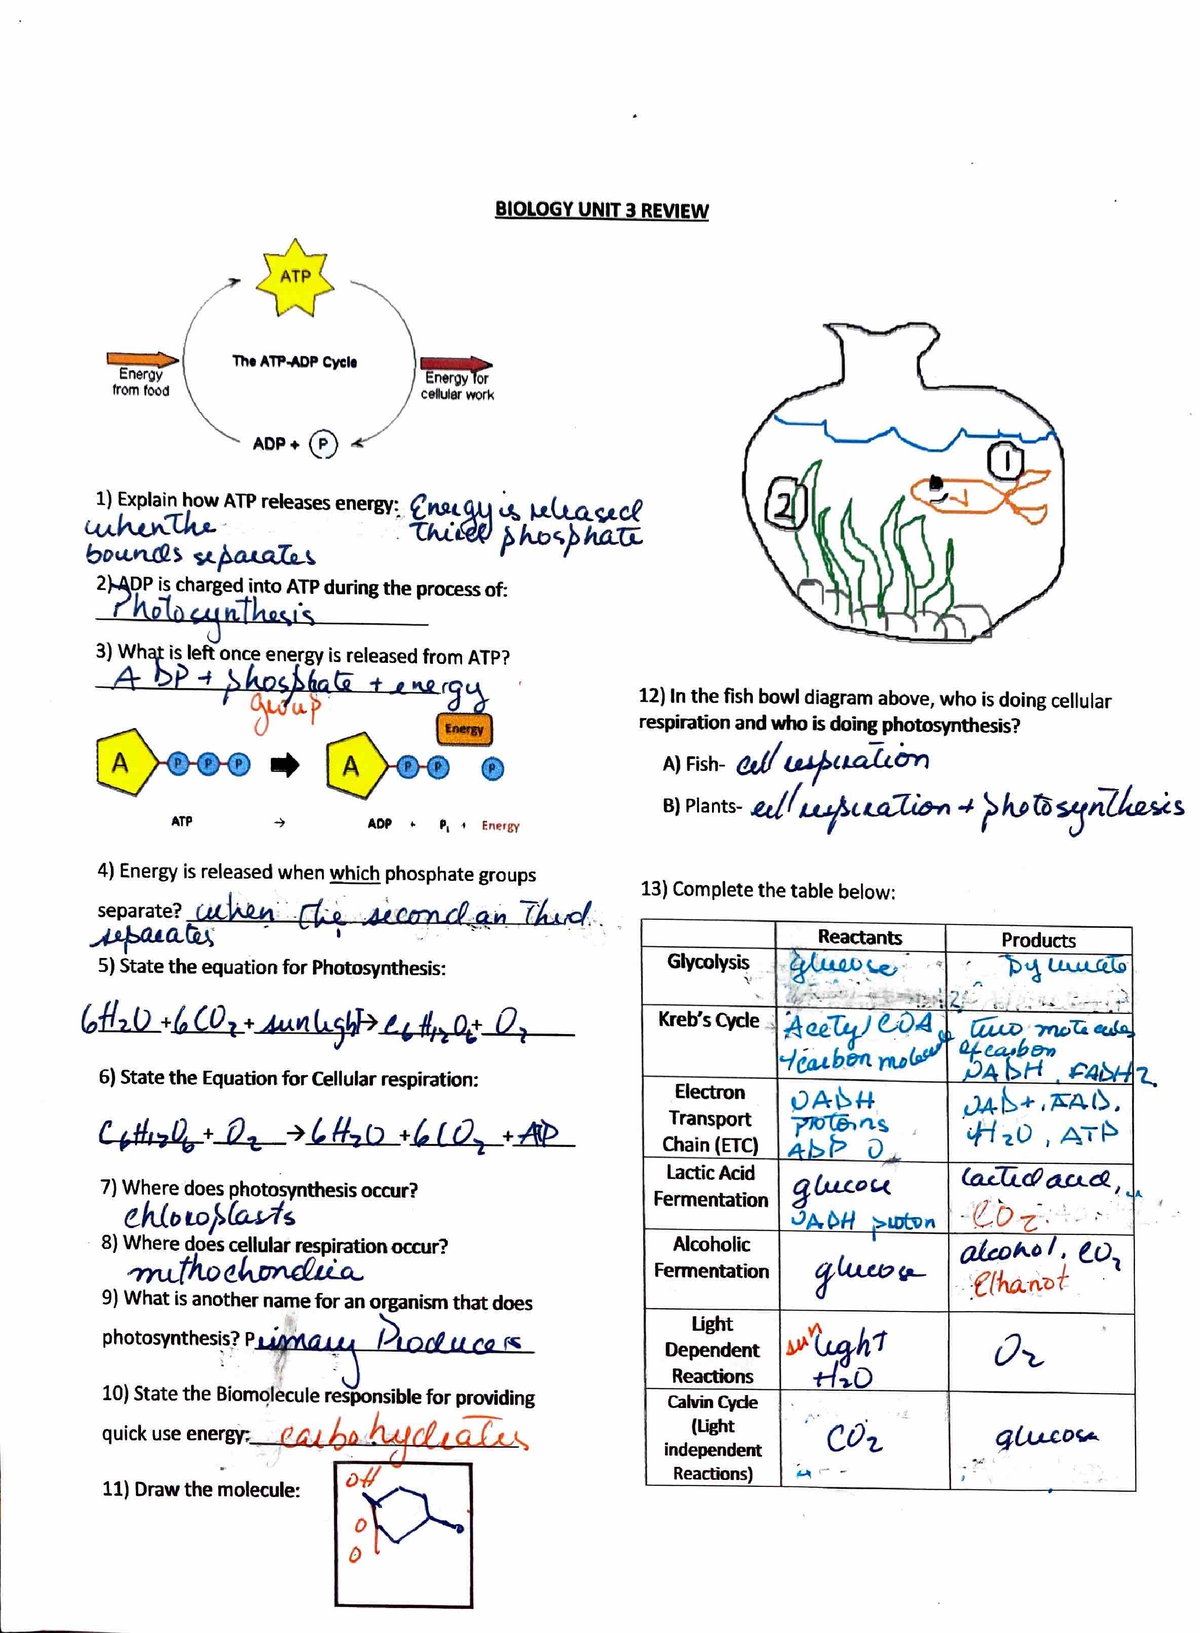 BIOLOGY UNIT 3 REVIEW
ATP
The ATP-ADP Cycle
Energy
from food
Energy for
cellular work
ADP + P
1) Explain how ATP releases energy: Energy is released
when the third phosphate
bounds separates
2) ADP is charged into ATP during the process of:
Photosynthesis
3) What is left once energy is released from ATP?
ADP + phosphate + energy
group
Energy
A P P P A P P P
ATP → ADP + Pi + Energy
4) Energy is released when which phosphate groups
separate? when the second an Third
separates
5) State the equation for Photosynthesis:
6H2O + 6CO2 + sunlight → C6H12O6 + O2
6) State the Equation for Cellular respiration:
C6H12O6 + O2 → 6H2O + 6CO2 + ATP
7) Where does photosynthesis occur?
chloroplasts
8) Where does cellular respiration occur?
mithochondria
9) What is another name for an organism that does
photosynthesis? Primary Producers
10) State the Biomolecule responsible for providing
quick use energy: carbohydrates
11) Draw the molecule:
OH
O
O
1
2
12) In the fish bowl diagram above, who is doing cellular
respiration and who is doing photosynthesis?
A) Fish- cell respiration
B) Plants- cell respiration + photosynthesis
13) Complete the table below:
Reactants Products
Glycolysis glucose pyruvate
2
Kreb's Cycle Acetyl COA two molecules
4 carbon molecule of carbon
NADH, FADH2
Electron
Transport
Chain (ETC)
NADH
protons
ADP O2
NAD+, FAD,
H2O, ATP
Lactic Acid
Fermentation
glucose
NADH proton
lactic acid,
CO2
Alcoholic
Fermentation
glucose
alcohol, CO2
Ethanol
Light
Dependent
Reactions
sunlight
H2O
O2
Calvin Cycle
(Light
independent
Reactions)
CO2
glucose